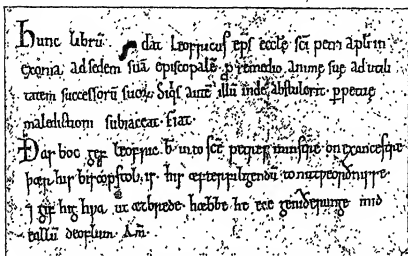 Hunc librū dat leofricus ep̄s eccłe sc̄i petri apłi in
exonia ad sedem suā episcopalē p remedio anime sue ad utili
tatem successorū suoꝝ. Siqs autē illū inde abstulerit. ppetue
maledictioni subiaceat. fiat.
Ðas boc leofric b into sc̄e petres minstre on exancestre
þær his bisceopstol is. his æfterfiligendū to
⁊ gif hig hwa ut ætbrede. hæbbe he ece geniðerunge mid
eallū deoflum. Am̄.